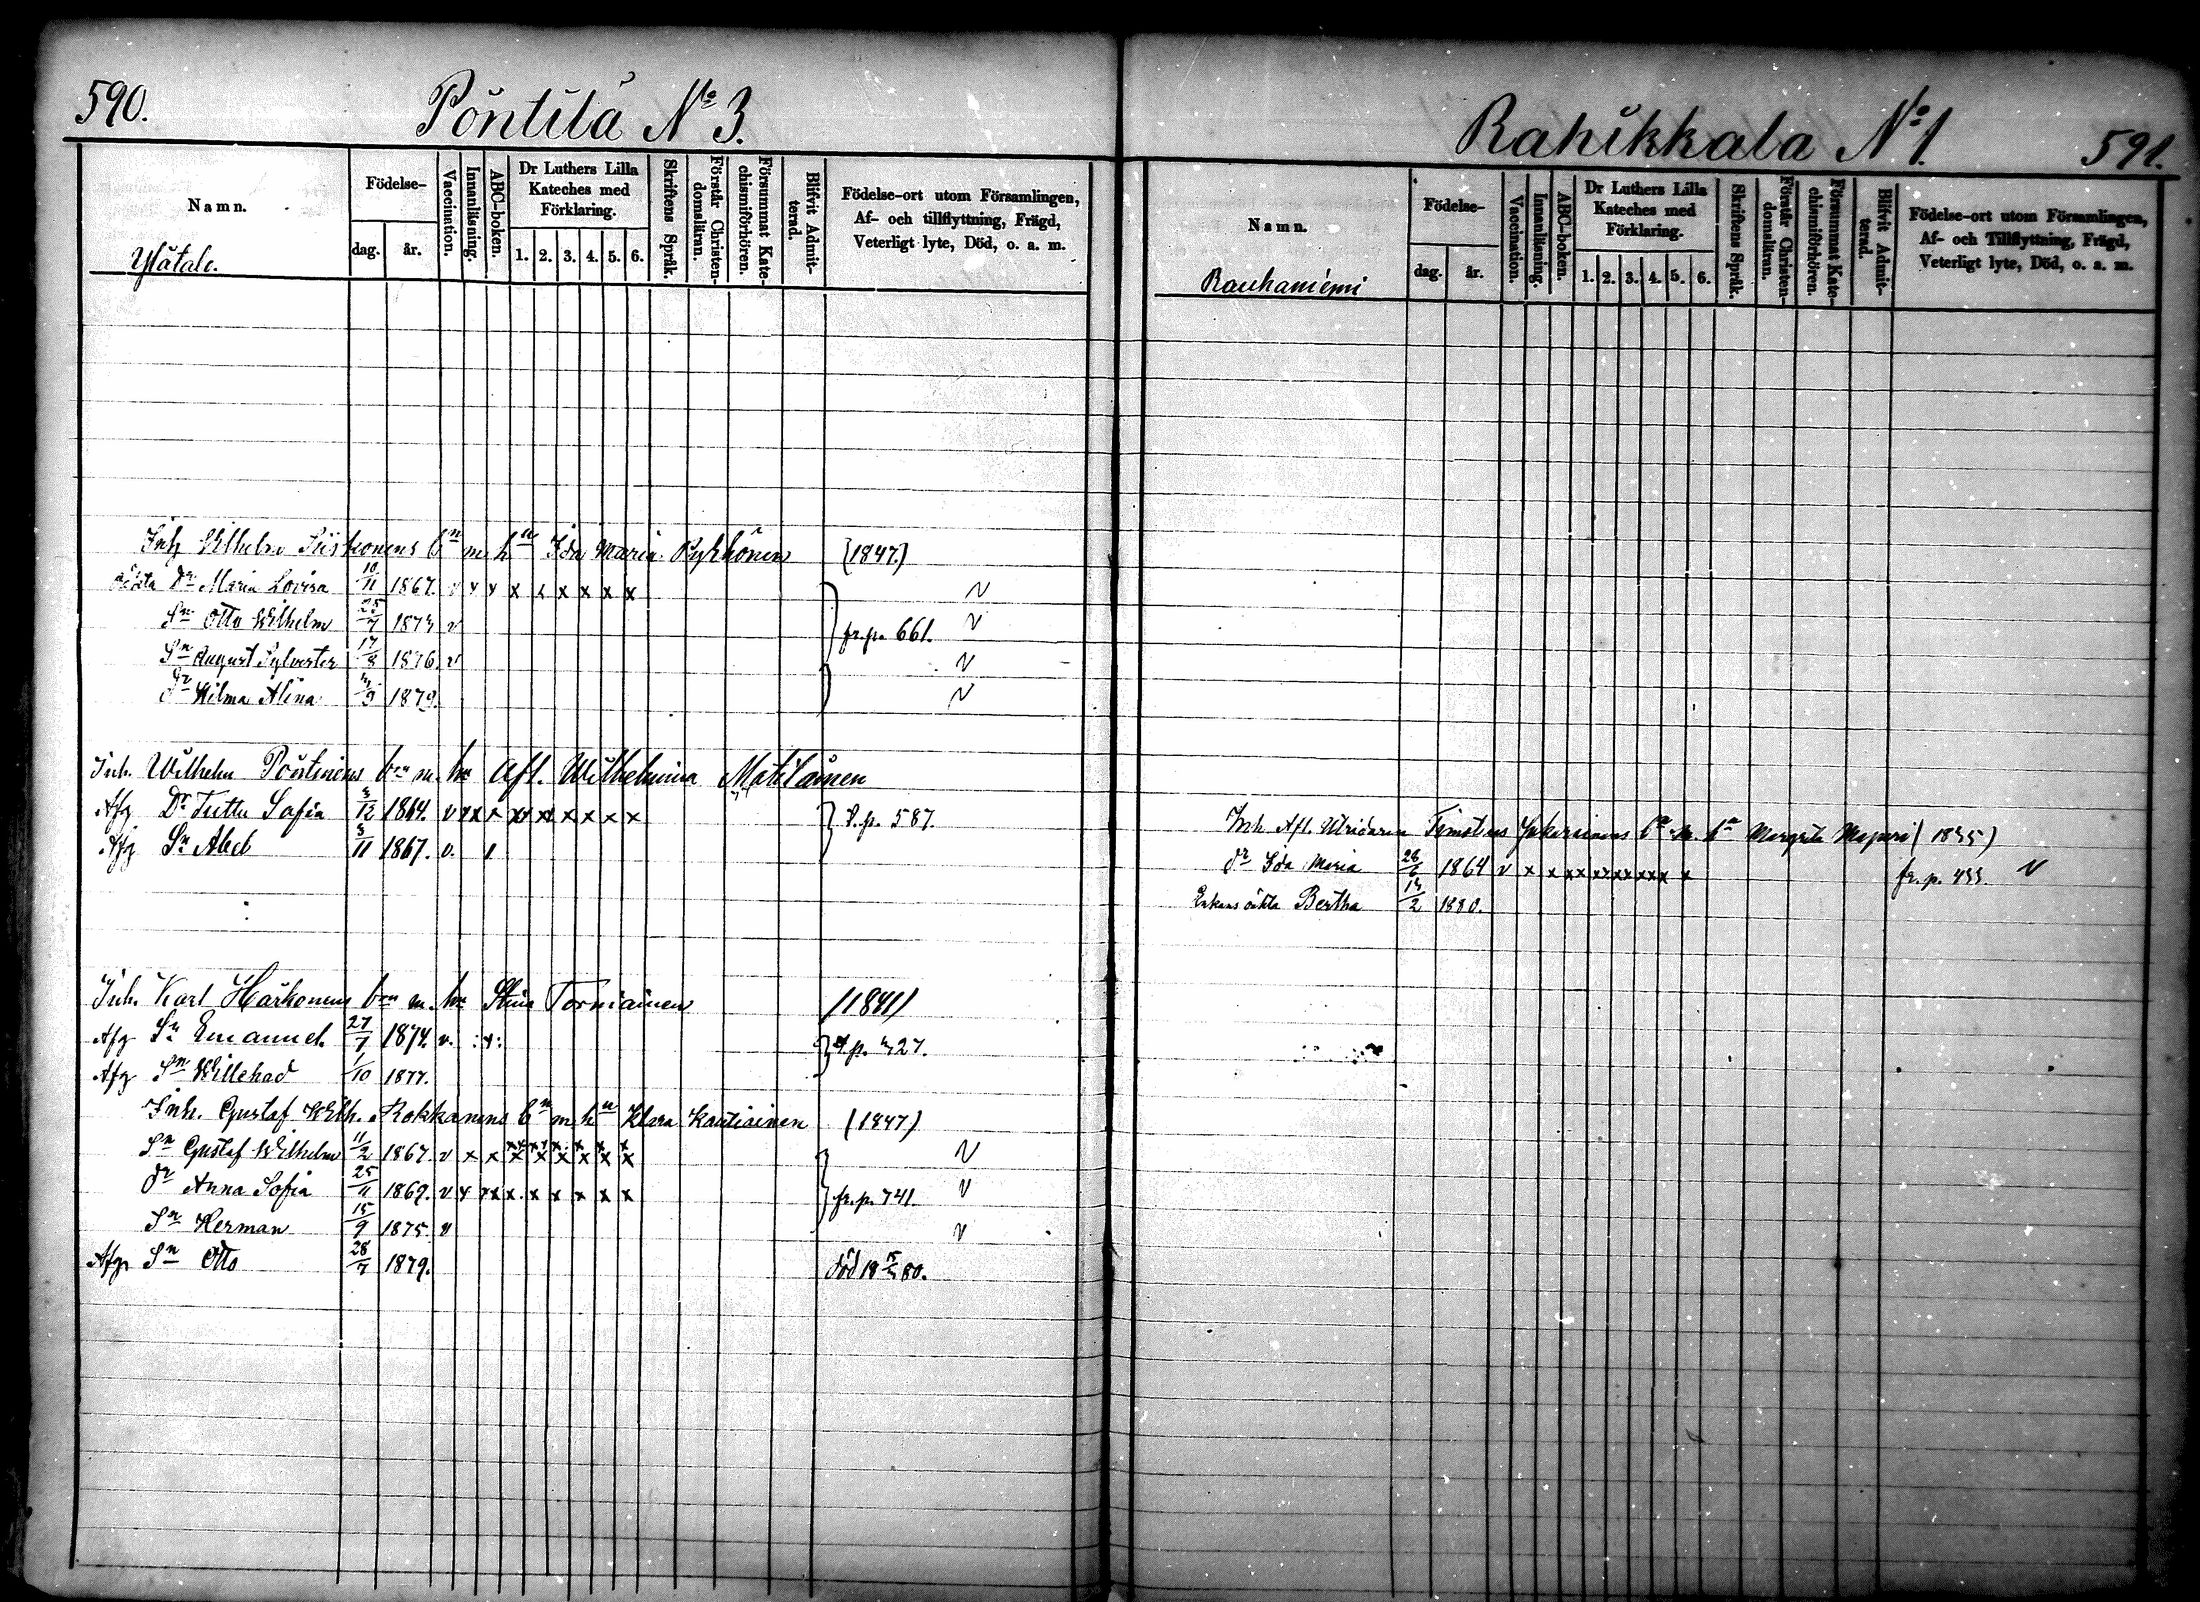 590.
Pöntilä № 3.
Namn.
Födelse-
dag.
år.
Vaccination.
Innanläsning.
ABC-boken.
Dr Luthers Lilla
Kateches med
Förklaring.
1. 2. 3. 4. 5. 6.
Skriftens Språk.
Förstår Christen-
domsläran.
Försummat Kate-
chismiförhören.
Blifvit Admit-
terad.
Födelse-ort utom Församlingen,
Af- och tillflyttning, Frägd,
Veterligt lyte, Död, o. a. m.
Ylätalo.
Inh Wilhelm bn m hn Ida Maria Pykkönen (1847.)
Dr Maria Lovisa 10/11 1867. v x x x x x x x x
Sn Otto Wilhelm 25/7 1873 v fr. p. 661.
Sn August Sylvester 17/8 1876. v
Dr Hilma Alina 1879.
Inh. Wilhelm Pöntinens bn m. hn Afl. Wilhelmina Matilainen
Afg Dr Juttu Sofia 3/12 1864. v xx x x x x x x x t. p. 587.
Afg Sn Abel 3/11 1867. v. 1
Inh. Karl Härkönens bn m. hn Stina Torniainen /1841/
Afg Sn Emanuel 27/7 1874. v. :x: t. p. 527.
Afg Sn Willehad 1/10 1877.
Inh. Gustaf Wilh. Rokkanens bn m hn Klara Kautiainen (1847)
Sn Gustaf Wilhelm 11/2 1867. v x x x x x x x x
Dr Anna Sofia 25/11 1869. v x xx x x x x x x fr. p. 741.
Sn Herman 15/9 1875 v
Afg Sn Otto 28/7 1879. död 18 15/5 80.
Rahikkala № 1.
591.
Namn.
Födelse-
dag.
år.
Vaccination.
Innanläsning.
ABC-boken.
Dr Luthers Lilla
Kateches med
Förklaring.
1. 2. 3. 4. 5. 6.
Skriftens Språk.
Förstår Christen-
domsläran.
Försummat Kate-
chismiförhören.
Blifvit Admit-
terad.
Födelse-ort utom Församlingen,
Af- och Tillflyttning, Frägd,
Veterligt lyte, Död, o. a. m.
Rauhaniemi
Inh. Afl. bn m. hn Margreta (1835)
Dr Ida Maria 28/6 1864 v x x xx xx xx xx x x fr. p. 433.
Enkans oäkta Bertha 13/2 1880.